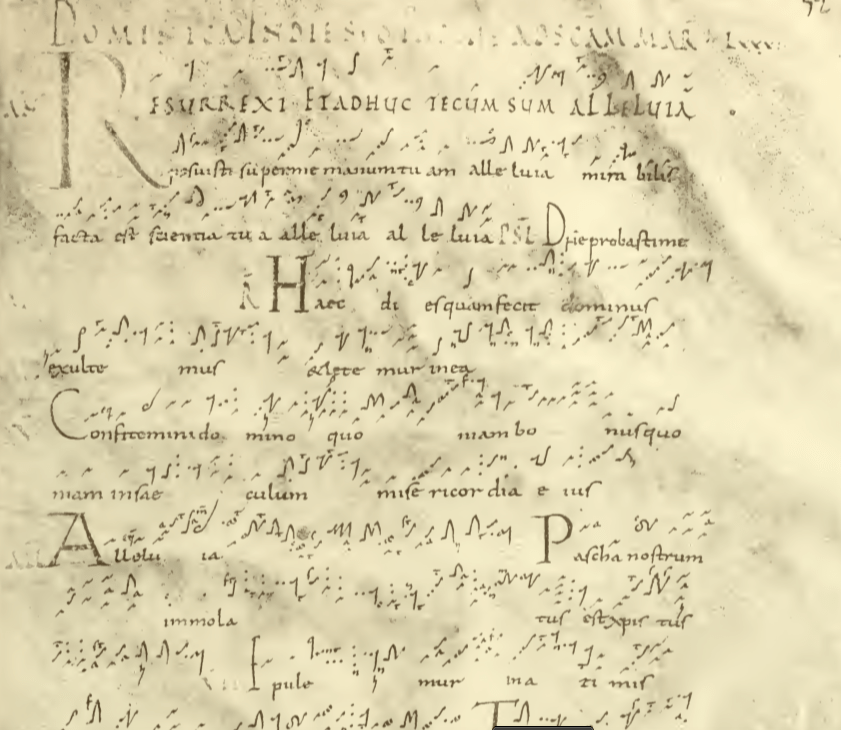 DOMINICA IN DIE S AD SCAM MAR
RESURREXI ET ADHUC TECUM SUM ALLELUIA
posuisti super me manum tu am alle luia mira bilis
facta est scientia tu a alle luia al le luia PSL Dne probasti me
R Haec di es quam fecit dominus
exulte mus & laete mur in ea
Confitemini do mino quo niam bo nus quo
niam in sae culum mise ricor dia e ius
Allelu ia Pascha nostrum
immola tus est xps tus
Epule mur ina ti mis